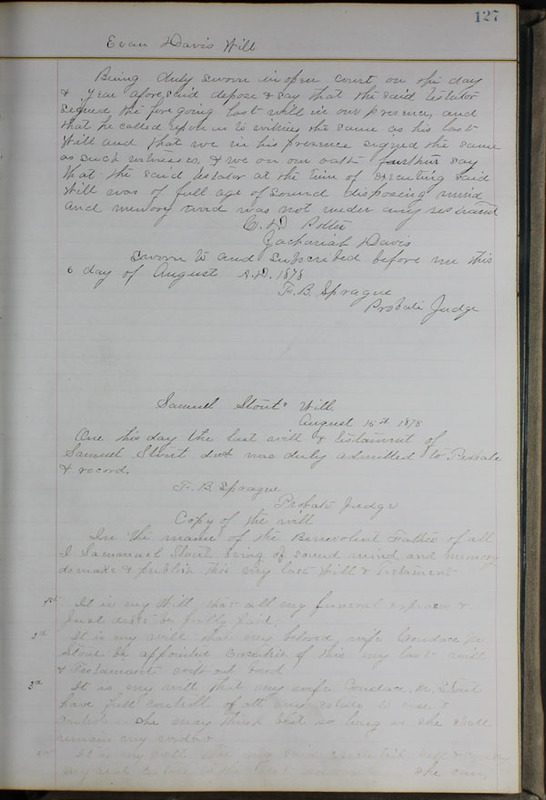 127
Evan Davis Will
Being duly sworn in open court on the day
& year aforesaid depose & say that the said testator
signed the foregoing last will in our presence, and
that he called upon us to witness the same as his last
Will and that we in his presence signed the same
as such witnesses, & we on our oath further say
that the said testator at the time of executing said
Will was of full age of sound disposing mind
and memory and was not under any restraint
Zachariah Davis
Sworn to and subscribed before me this
6 day of August A.D. 1878
F. B. Sprague
Probate Judge
Samuel Stout Will
August 15th 1878
One this day the last will & testament of
Samuel Stout was duly admitted to Probate
& record.
F. B. Sprague
Probate Judge
Copy of the will
In the name of the Benevolent Father of all
I Sammuel Stout being of sound mind and memory
do make & publish this my last Will & Testament
1st It is my Will that all my funeral expenses &
just debts be fully paid.
It is my will that my beloved wife Candace M
Stout be appointed of this my last will
& Testament with out bond
3d It is my will that my wife Candace M. Stout
have full controll of all my estate to use &
as she may think best so long as she shall
remain my widow
It is my will that my said
my real estate she can